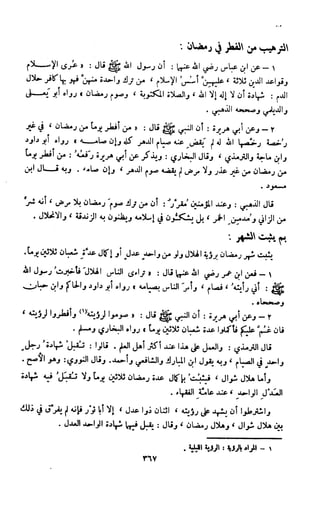 الترهيب من الفطر في رمضان :
١ - عن ابن عباس رضي الله عنهما : أن رسول الله ﷺ قال : « عُرى الإسلام
وقواعد الدين ثلاثة ، عليهن أُسس الإسلام ، من ترك واحدة منهن فهو بها كافر حلال
الدم : شهادة أن لا إله إلا الله ، والصلاة المكتوبة ، وصوم رمضان » رواه أبو يعلى
والديلمي وصححه الذهبي .
٢ - وعن أبي هريرة : أن النبي ﷺ قال : « من أفطر يوماً من رمضان ، في غير
رخصة رخصها الله له لم يقض عنه صيام الدهر كله وإن صامه » رواه أبو داود
وابن ماجة والترمذي ، وقال البخاري : ويذكر عن أبي هريرة رفعه : « من أفطر يوماً
من رمضان من غير عذر ولا مرض لم يقضه صوم الدهر ، وإن صامه . وبه قال ابن
مسعود .
قال الذهبي : وعند المؤمنين مقرر : أن من ترك صوم رمضان بلا مرض ، أنه شر
من الزاني ومدمن الخمر ، بل يشكون في إسلامه ويظنون به الزندقة ، والانحلال .
بم يثبت الشهر :
يثبت شهر رمضان برؤية الهلال ولو من واحد عدل أو إكمال عدة شعبان ثلاثين يوماً .
١ - فعن ابن عمر رضي الله عنهما قال : « تراءى الناس الهلال فأخبرت رسول الله
ﷺ : أني رأيته ، فصام ، وأمر الناس بصيامه » رواه أبو داود والحاكم وابن حبان
وصححاه .
٢ - وعن أبي هريرة : أن النبي ﷺ قال : « صوموا لرؤيته (١) وأفطروا لرؤيته ،
فان غم عليكم فأكملوا عدة شعبان ثلاثين يوماً » رواه البخاري ومسلم .
قال الترمذي : والعمل على هذا عند أكثر أهل العلم . قالوا : تقبل شهادة رجل
واحد في الصيام ، وبه يقول ابن المبارك والشافعي وأحمد . وقال النووي : وهو الأصح .
وأما هلال شوال ، فيثبت بإكمال عدة رمضان ثلاثين يوماً ولا تقبل فيه شهادة
العدل الواحد ، عند عامة الفقهاء .
واشترطوا أن يشهد على رؤيته ، اثنان ذوا عدل ، إلا أبا ثور فإنه لم يفرق في ذلك
بين هلال شوال ، وهلال رمضان ، وقال : يقبل فيهما شهادة الواحد العدل .
١ - المراد بالرؤية : الرؤية الليلية .
٣٦٧